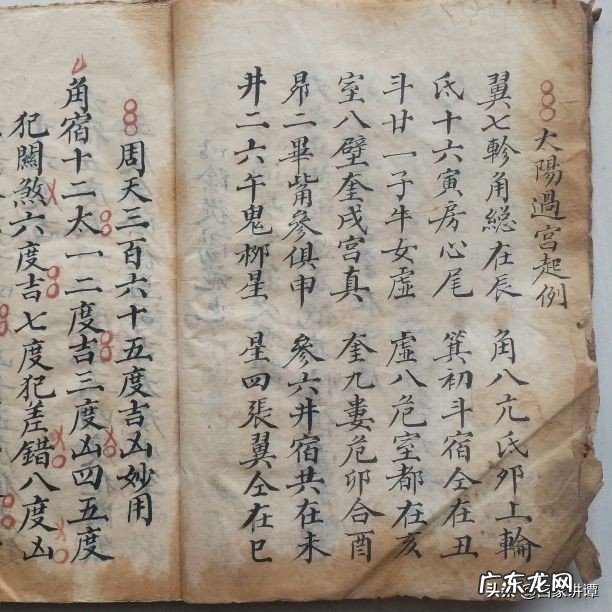 太陽過宮起例
翼七軫角總在辰 角八亢氐卯上輪
氐十六寅房心尾 箕初斗宿仝在丑
斗廿一子牛女虛 虛八危室都在亥
室八壁奎戌宮真 奎九婁危卯合酉
昴二畢觜參俱申 參六井宿共在未
井二六午鬼柳星 星四張翼仝在巳
周天三百六十五度吉凶妙用
角宿十二太一二度吉三度凶四五度
犯關煞六度吉七度犯差錯八度凶
头条 @百家讲谭
广东龙网